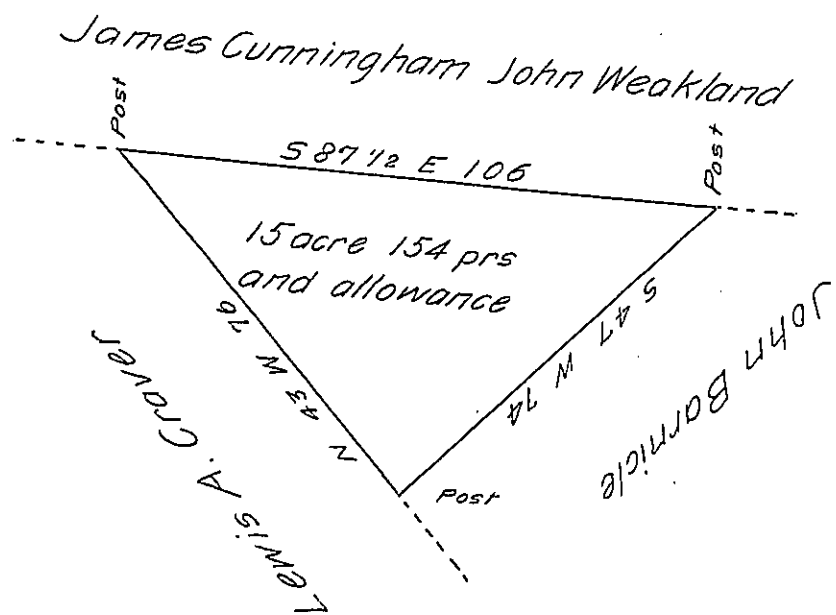 James Cunningham John Weakland
Post
Post
S 87 1/2 E 106
15 acre 154 prs
and allowance
N 43 W 76
S 47 W 74
Lewis A. Craver
John Barnicle
Post